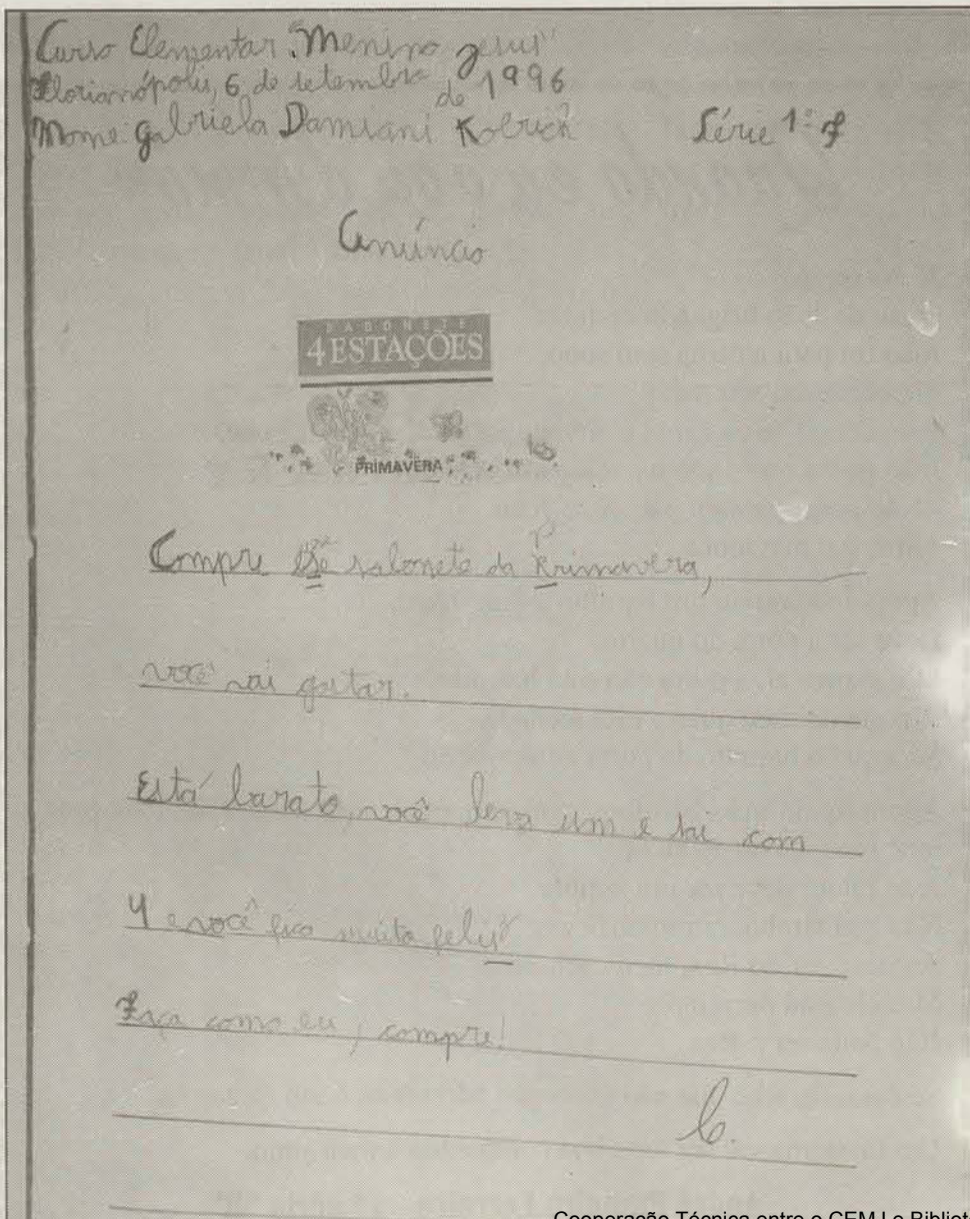 Curso Elementar "Menino Jesus"
Florianópolis, 6 de setembro de 1996
Nome: Gabriela Damiani Série 1ª
Anúncio
SABONETE
4 ESTAÇÕES
PRIMAVERA
Compre esse sabonete da Primavera,
você vai gostar.
Está barato, você leva um e sai com
4 e você fica muito feliz
Faça como eu, compre!
Cooperação Técnica entre o CEMJ e Bibliot